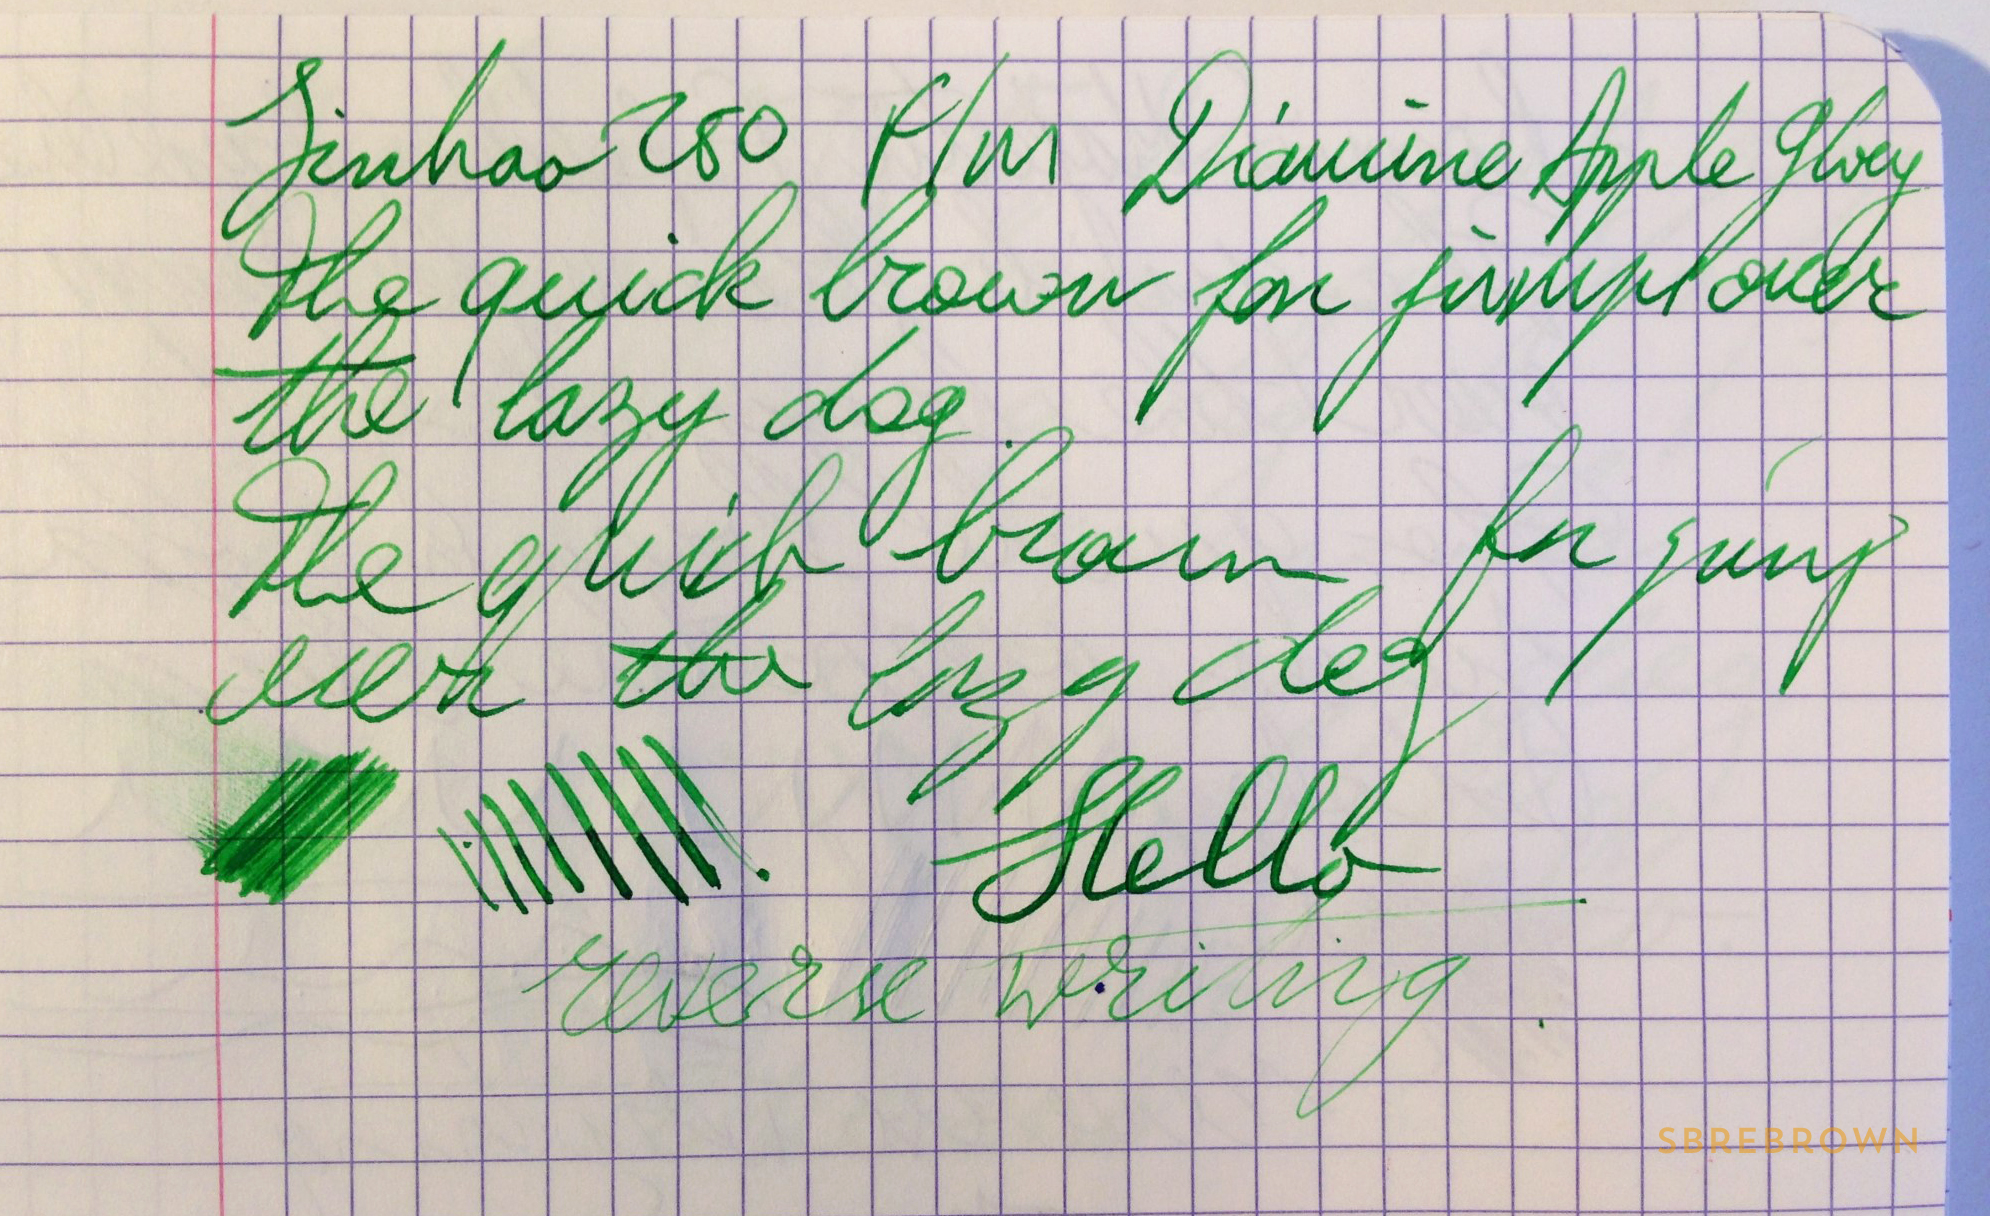 Jinhao 250 F/M Diamine Apple Glory
The quick brown fox jumps over
the lazy dog.
The quick brown fox jump
over the lazy dog
Hello
reverse writing
SBREBROWN